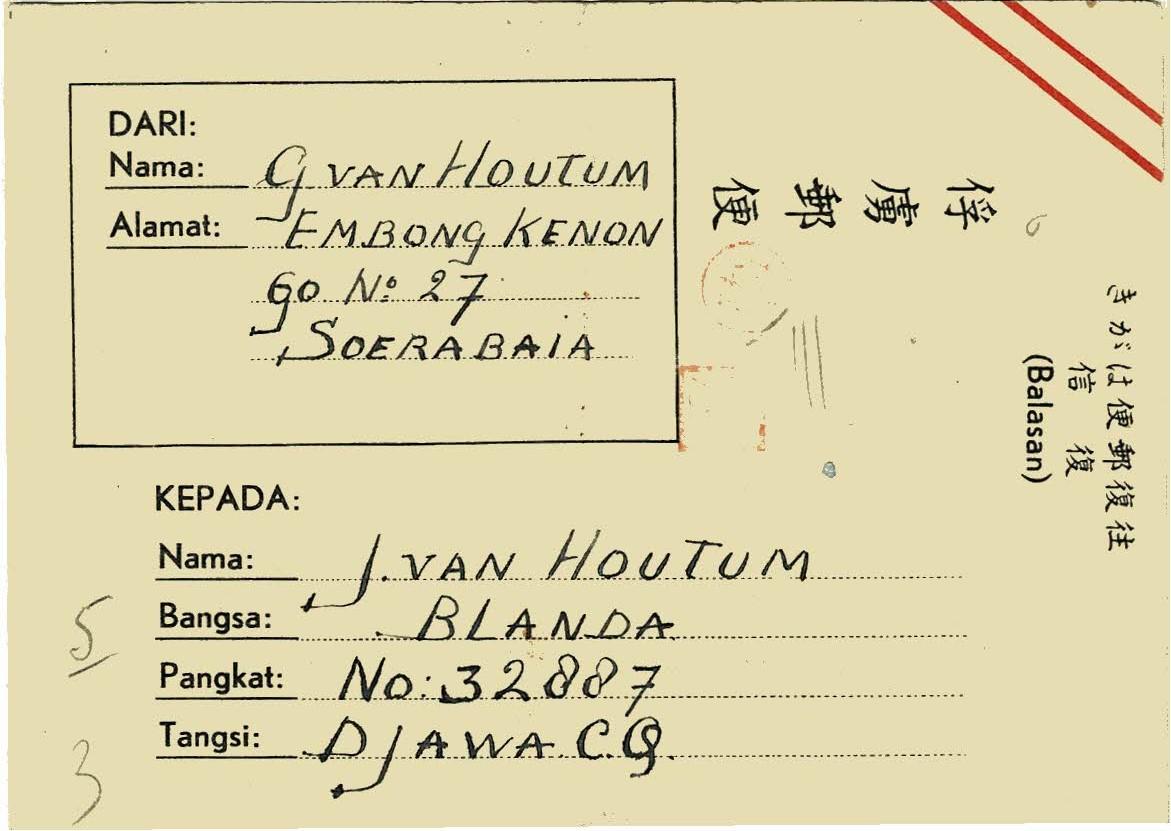 DARI:
Nama: G VAN HOUTUM
Alamat: EMBONG KENON
GO Nº 27
SOERABAIA
俘虜郵便
往復郵便はがき
復信
(Balasan)
KEPADA:
Nama: J. VAN HOUTUM
Bangsa: BLANDA
Pangkat: No: 32887
Tangsi: DJAWA C.Q.
5
3